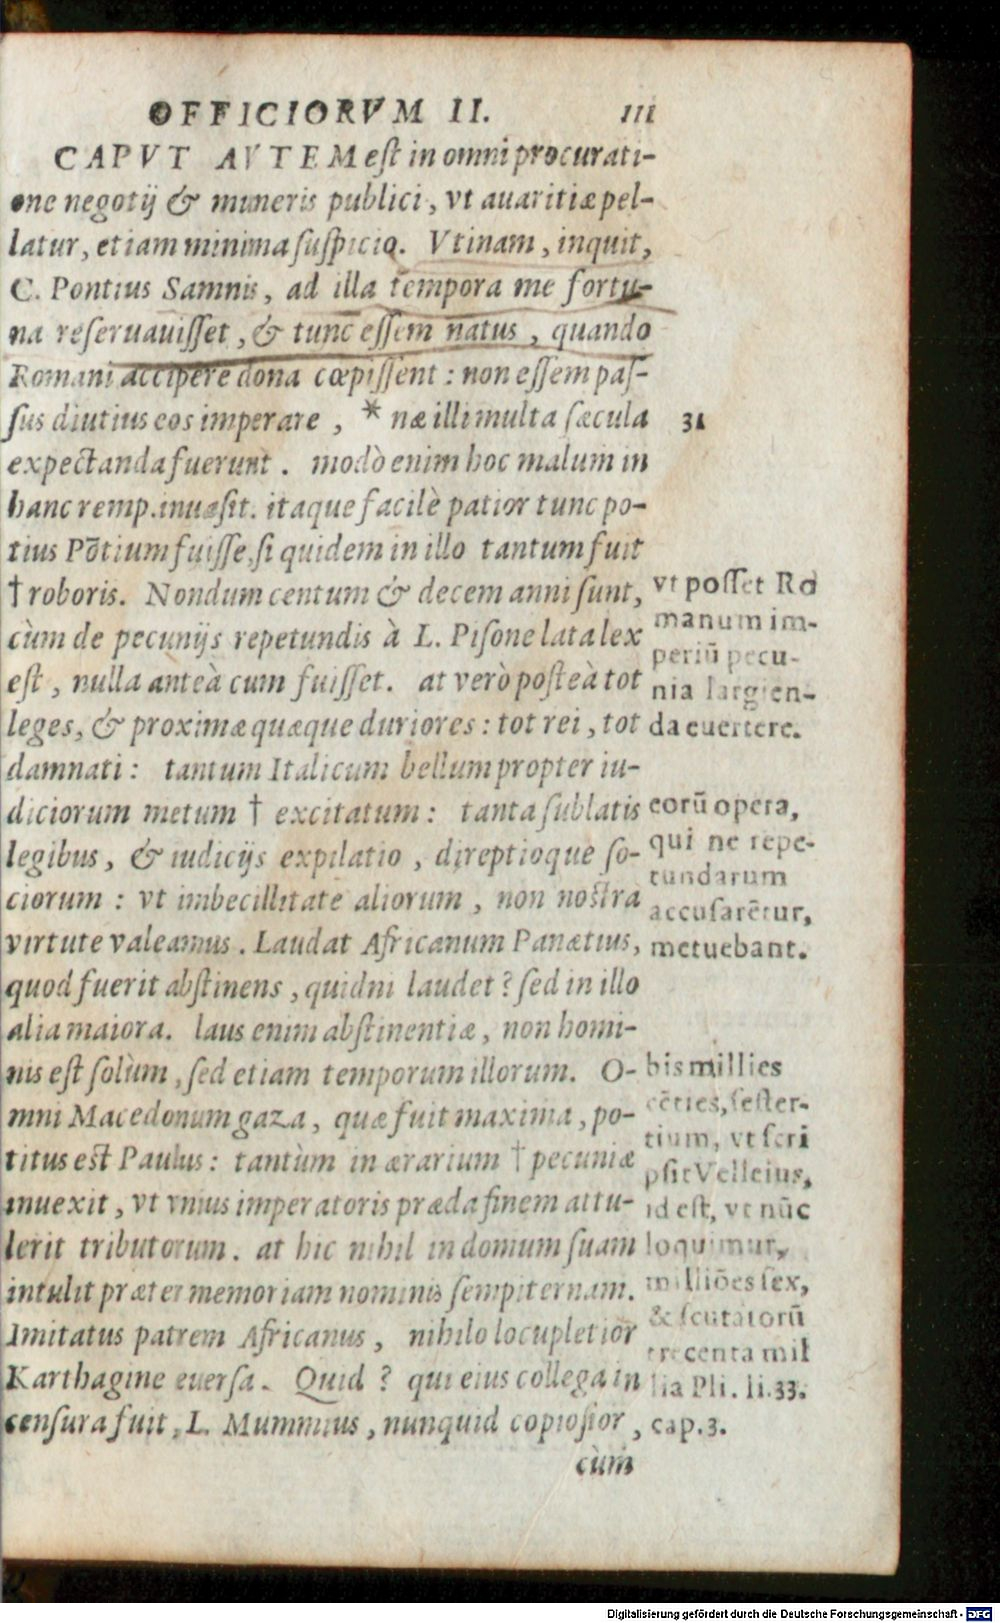 OFFICIORVM II. 111
CAPVT AVTEM est in omni procurati-
one negotij & muneris publici, vt auaritiæ pel-
latur, etiam minima suspicio. Vtinam, inquit,
C. Pontius Samnis, ad illa tempora me fortu-
na reseruauisset, & tunc essem natus, quando
Romani accipere dona cœpissent: non essem pas-
sus diutius eos imperare, * næ illi multa sæcula
31
expectanda fuerunt. modò enim hoc malum in
hanc remp. inuasit. itaque facilè patior tunc po-
tius Põtium fuisse, si quidem in illo tantum fuit
† roboris. Nondum centum & decem anni sunt,
cùm de pecunijs repetundis à L. Pisone lata lex
est, nulla anteà cum fuisset. at verò posteà tot
leges, & proximæ quæque duriores: tot rei, tot
damnati: tantum Italicum bellum propter iu-
diciorum metum † excitatum: tanta sublatis
legibus, & iudicijs expilatio, direptioque so-
ciorum: vt imbecillitate aliorum, non nostra
virtute valeamus. Laudat Africanum Panætius,
quod fuerit abstinens, quidni laudet? sed in illo
alia maiora. laus enim abstinentiæ, non homi-
nis est solùm, sed etiam temporum illorum. O-
mni Macedonum gaza, quæ fuit maxima, po-
titus est Paulus: tantùm in ærarium † pecuniæ
inuexit, vt vnius imperatoris præda finem attu-
lerit tributorum. at hic nihil in domum suam
intulit præter memoriam nominis sempiternam.
Imitatus patrem Africanus, nihilo locupletior
Karthagine euersa. Quid? qui eius collega in
censura fuit, L. Mummius, nunquid copiosior,
cùm
vt posset Ro
manum im-
periũ pecu-
nia largien-
da euertere.
eorũ opera,
qui ne repe-
tundarum
accusarẽtur,
metuebant.
bis millies
cẽties, sester-
tium, vt scri
psit Velleius,
id est, vt nũc
loquimur,
milliões sex,
& scutatorũ
trecenta mil
lia Pli. li. 33.
cap. 3.
Digitalisierung gefördert durch die Deutsche Forschungsgemeinschaft - DFG